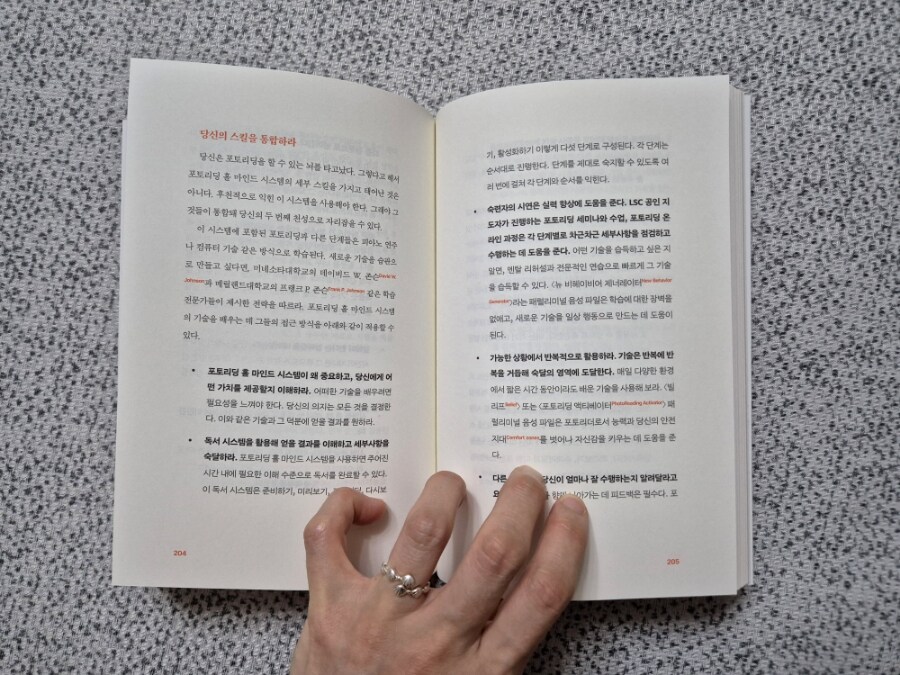 당신의 스킬을 통합하라
당신은 포토리딩을 할 수 있는 뇌를 타고났다. 그렇다고 해서
포토리딩 홀 마인드 시스템의 세부 스킬을 가지고 태어난 것은
아니다. 후천적으로 익힌 이 시스템을 사용해야 한다. 그래야 그
것들이 통합돼 당신의 두 번째 천성으로 자리잡을 수 있다.
이 시스템에 포함된 포토리딩과 다른 단계들은 피아노 연주
나 컴퓨터 기술 같은 방식으로 학습된다. 새로운 기술을 습관으
로 만들고 싶다면, 미네소타대학교의 데이비드 W. 존슨David W.
Johnson과 메릴랜드대학교의 프랭크 P. 존슨Frank P. Johnson 같은 학습
전문가들이 제시한 전략을 따르라. 포토리딩 홀 마인드 시스템
의 기술을 배우는 데 그들의 접근 방식을 아래와 같이 적용할 수
있다.
• 포토리딩 홀 마인드 시스템이 왜 중요하고, 당신에게 어
떤 가치를 제공할지 이해하라. 어떠한 기술을 배우려면
필요성을 느껴야 한다. 당신의 의지는 모든 것을 결정한
다. 이와 같은 기술과 그 덕분에 얻을 결과를 원하라.
• 독서 시스템을 활용해 얻을 결과를 이해하고 세부사항을
숙달하라. 포토리딩 홀 마인드 시스템을 사용하면 주어진
시간 내에 필요한 이해 수준으로 독서를 완료할 수 있다.
이 독서 시스템은 준비하기, 미리보기, 다시보
204
기, 활성화하기 이렇게 다섯 단계로 구성된다. 각 단계는
순서대로 진행한다. 단계를 제대로 숙지할 수 있도록 여
러 번에 걸쳐 각 단계와 순서를 익힌다.
• 숙련자의 시연은 실력 향상에 도움을 준다. LSC 공인 지
도자가 진행하는 포토리딩 세미나와 수업, 포토리딩 온
라인 과정은 각 단계별로 차근차근 세부사항을 점검하고
수행하는 데 도움을 준다. 어떤 기술을 습득하고 싶은 지
알면, 멘탈 리허설과 전문적인 연습으로 빠르게 그 기술
을 습득할 수 있다. 〈뉴 비헤이비어 제너레이터New Behavior
Generator〉라는 패럴리미널 음성 파일은 학습에 대한 장벽을
없애고, 새로운 기술을 일상 행동으로 만드는 데 도움이
된다.
• 가능한 상황에서 반복적으로 활용하라. 기술은 반복에 반
복을 거듭해 숙달의 영역에 도달한다. 매일 다양한 환경
에서 짧은 시간 동안이라도 배운 기술을 사용해 보라. 〈빌
리프Belief〉 또는 〈포토리딩 액티베이터PhotoReading Activator〉 패
럴리미널 음성 파일은 포토리더로서 능력과 당신의 안전
지대Comfort zones를 벗어나 자신감을 키우는 데 도움을 준
다.
• 다른 당신이 얼마나 잘 수행하는지 알려달라고
함께 나아가는 데 피드백은 필수다. 포
205